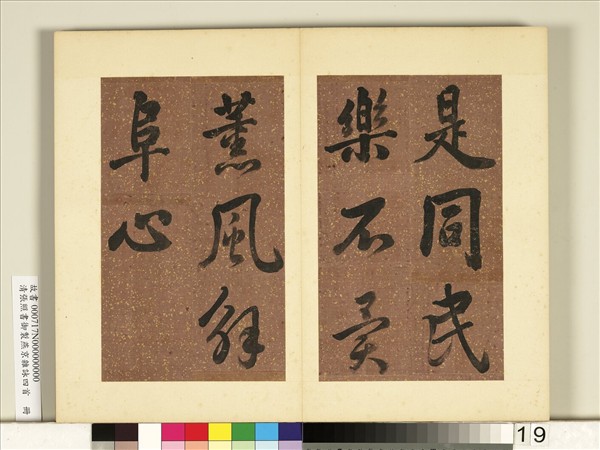 是同民
樂不異
薰風解
阜心
故書 000717N00000000
清張照書御製燕京雜詠四首 冊
19